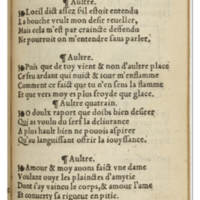 ¶ Aultre.
L'oeil dict assez s'il estoit entendu
La bouche veult mon desir reueller,
Mais cela m'est par craincte deffendu
Ne pourroit on m'entendre sans parler,
¶ Aultre.
Puis que de toy vient & non d'aultre place
Ce feu ardant qui nuict & iour m'enflamme
Comment ce fait que tu n'en sens la flamme
Et que vers moy es plus froyde que glace.
¶ Aultre quatrain.
O doulx raport que doibs bien desirer
Qui as voulu du serf la deliurance
A plus hault bien ne pouois aspirer
Qu'au languissant offrir la iouyssance.
¶ Aultre.
Amour & moy auons faict vne dame
Voulant ouyr les plainctes d'amytie
Dont i'ay vaincu le corps, & amour l'ame
Et conuerty sa rigueur en pitie.